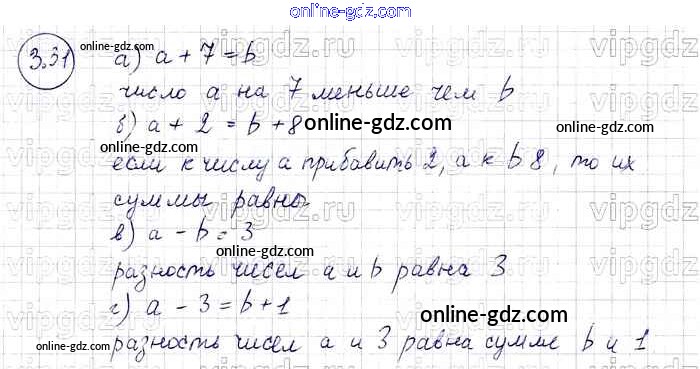 online-gdz.com
3.31 online-gdz.com а) a + 7 = b
число a на 7 меньше чем b
б) a + 2 = b + 8 online-gdz.com
если к числу a прибавить 2, а к b 8, то их
суммы равны.
в) a - b = 3
online-gdz.com
разность чисел a и b равна 3
г) a - 3 = b + 1 online-gdz.com
разность чисел a и 3 равна сумме b и 1
online-gdz.com
vipgdz.ru